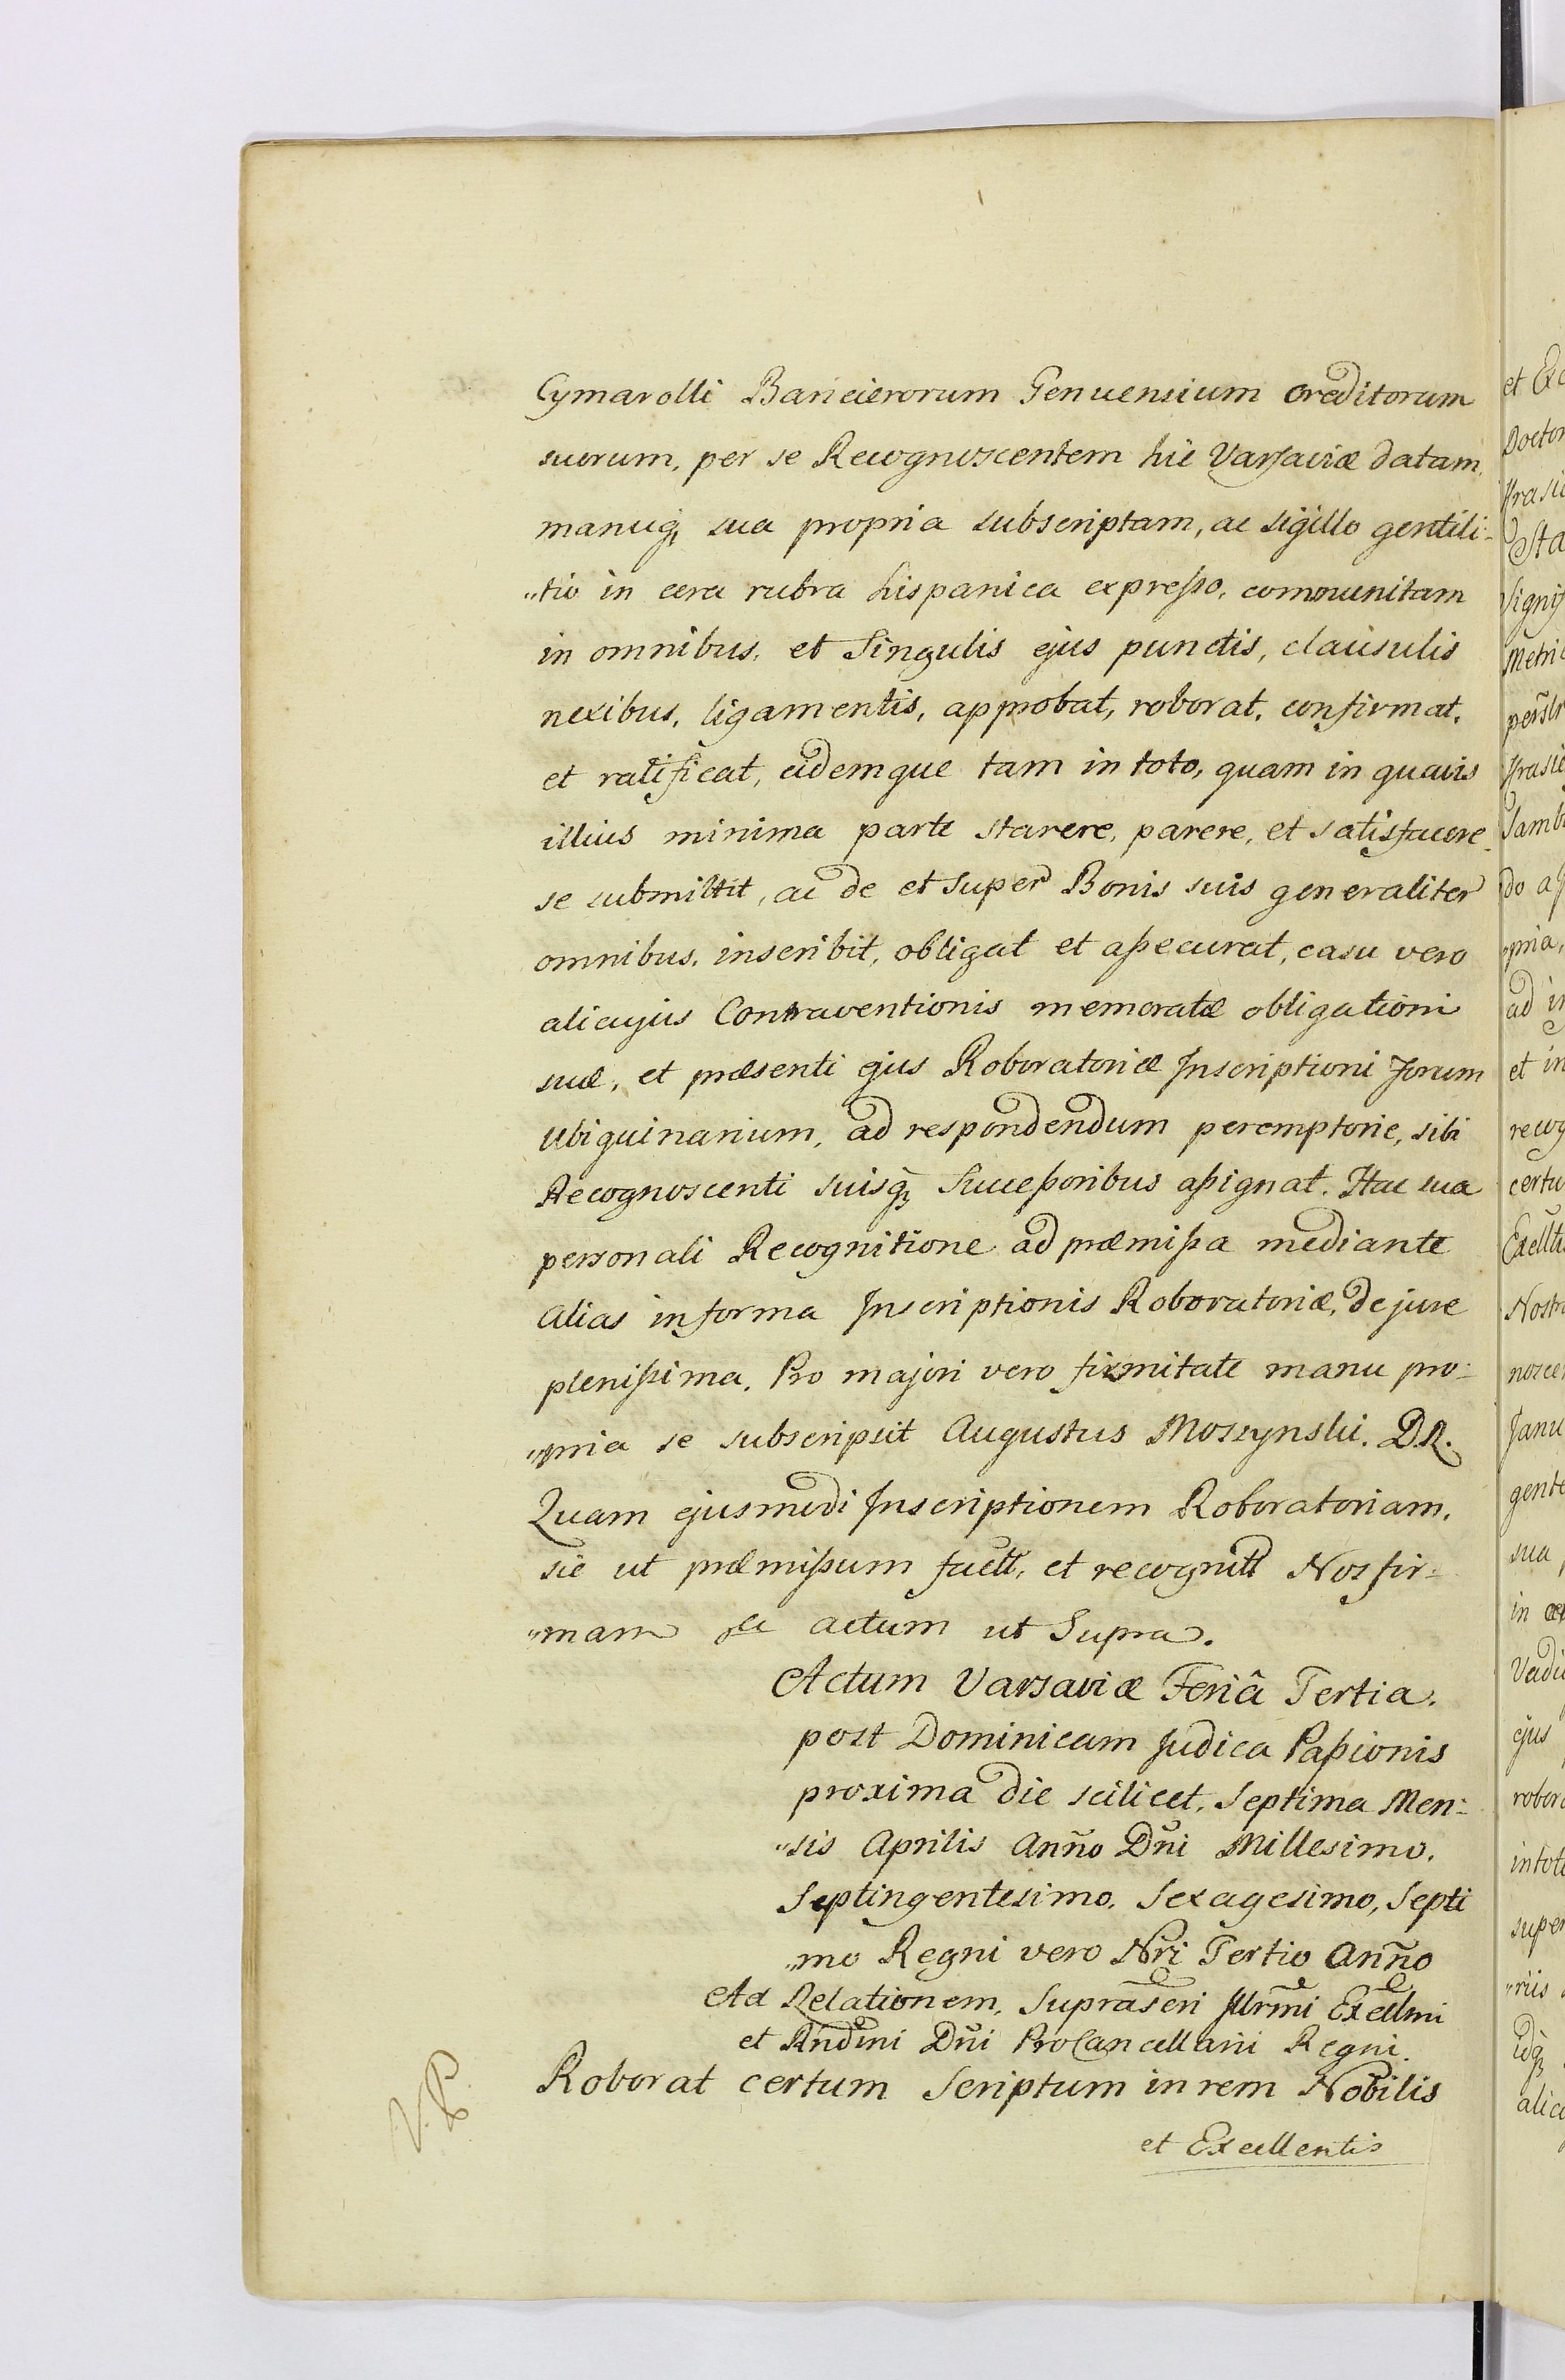 Cymarolli Bancierorum Genuensium Creditorum
suorum, per se Recognoscentem hic Varsaviæ datam,
manuq, sua propria subscriptam, ac sigillo gentili-
"tio in cera rubra hispanica expreſso, communitam
in omnibus, et Singulis ejus punctis, clausulis
nexibus, ligamentis, approbat, roborat, confirmat,
et ratificat, eidemque tam in toto, quam in quavis
illius minima parte starere, parere, et satisfacere
se submittit, ac de et super Bonis suis generaliter
omnibus, inscribit, obligat et aſsecurat, casu vero
alicujus Contraventionis memoratæ obligationi
suæ, et præsenti ejus Roboratoriæ Inscriptioni Forum
Ubiquinarium, ad respondendum peremptorie, sibi
Recognoscenti suisq, Succeſsoribus aſsignat. Hac sua
personali Recognitione ad præmiſsa mediante
Alias in forma Inscriptionis Roboratoriæ, de jure
pleniſsima. Pro majori vero firmitate manu pro-
"pria se subscripsit Augustus Moszynski. D.R.
Quam ejusmodi Inscriptionem Roboratoriam,
sic ut præmiſsum factt, et recognitt Nos fir-
"mam &c actum ut Supra.
Actum Varsaviæ Feriâ Tertia.
post Dominicam Judica Paſsionis
proxima die scilicet, Septima Men-
"sis Aprilis Anño Dñi Millesimo,
Septingentesimo, Sexagesimo, Septi
"mo Regni vero Nri Tertio Anño
Ad Relationem, Suprascri Illrmi Excllmi
et Rndmi Dñi ProCancellarii Regni.
V.P.
Roborat certum Scriptum in rem Nobilis
et Excellentis
et Exc
Doctor
Sta
Signif
Metric
do aſ
"pria,
ad in
et in
recog
certu
Excllt
Nostr
nosce
Janu
gente
sua
in
Vadi
ejus
robor
in tot
super
"riis
idq,
alicu